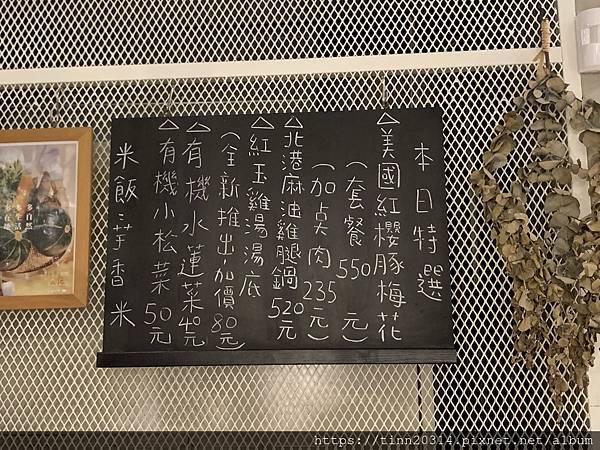 本日特選
△美國紅櫻豚梅花
(套餐 550 元)
(加点肉 235 元)
△北港麻油雞腿鍋 520元
△紅玉雞湯湯底
(全新推出加價80元)
△有機水蓮菜 40元
△有機小松菜 50元
米飯:芋香米
https://tinn20314.pixnet.net/album